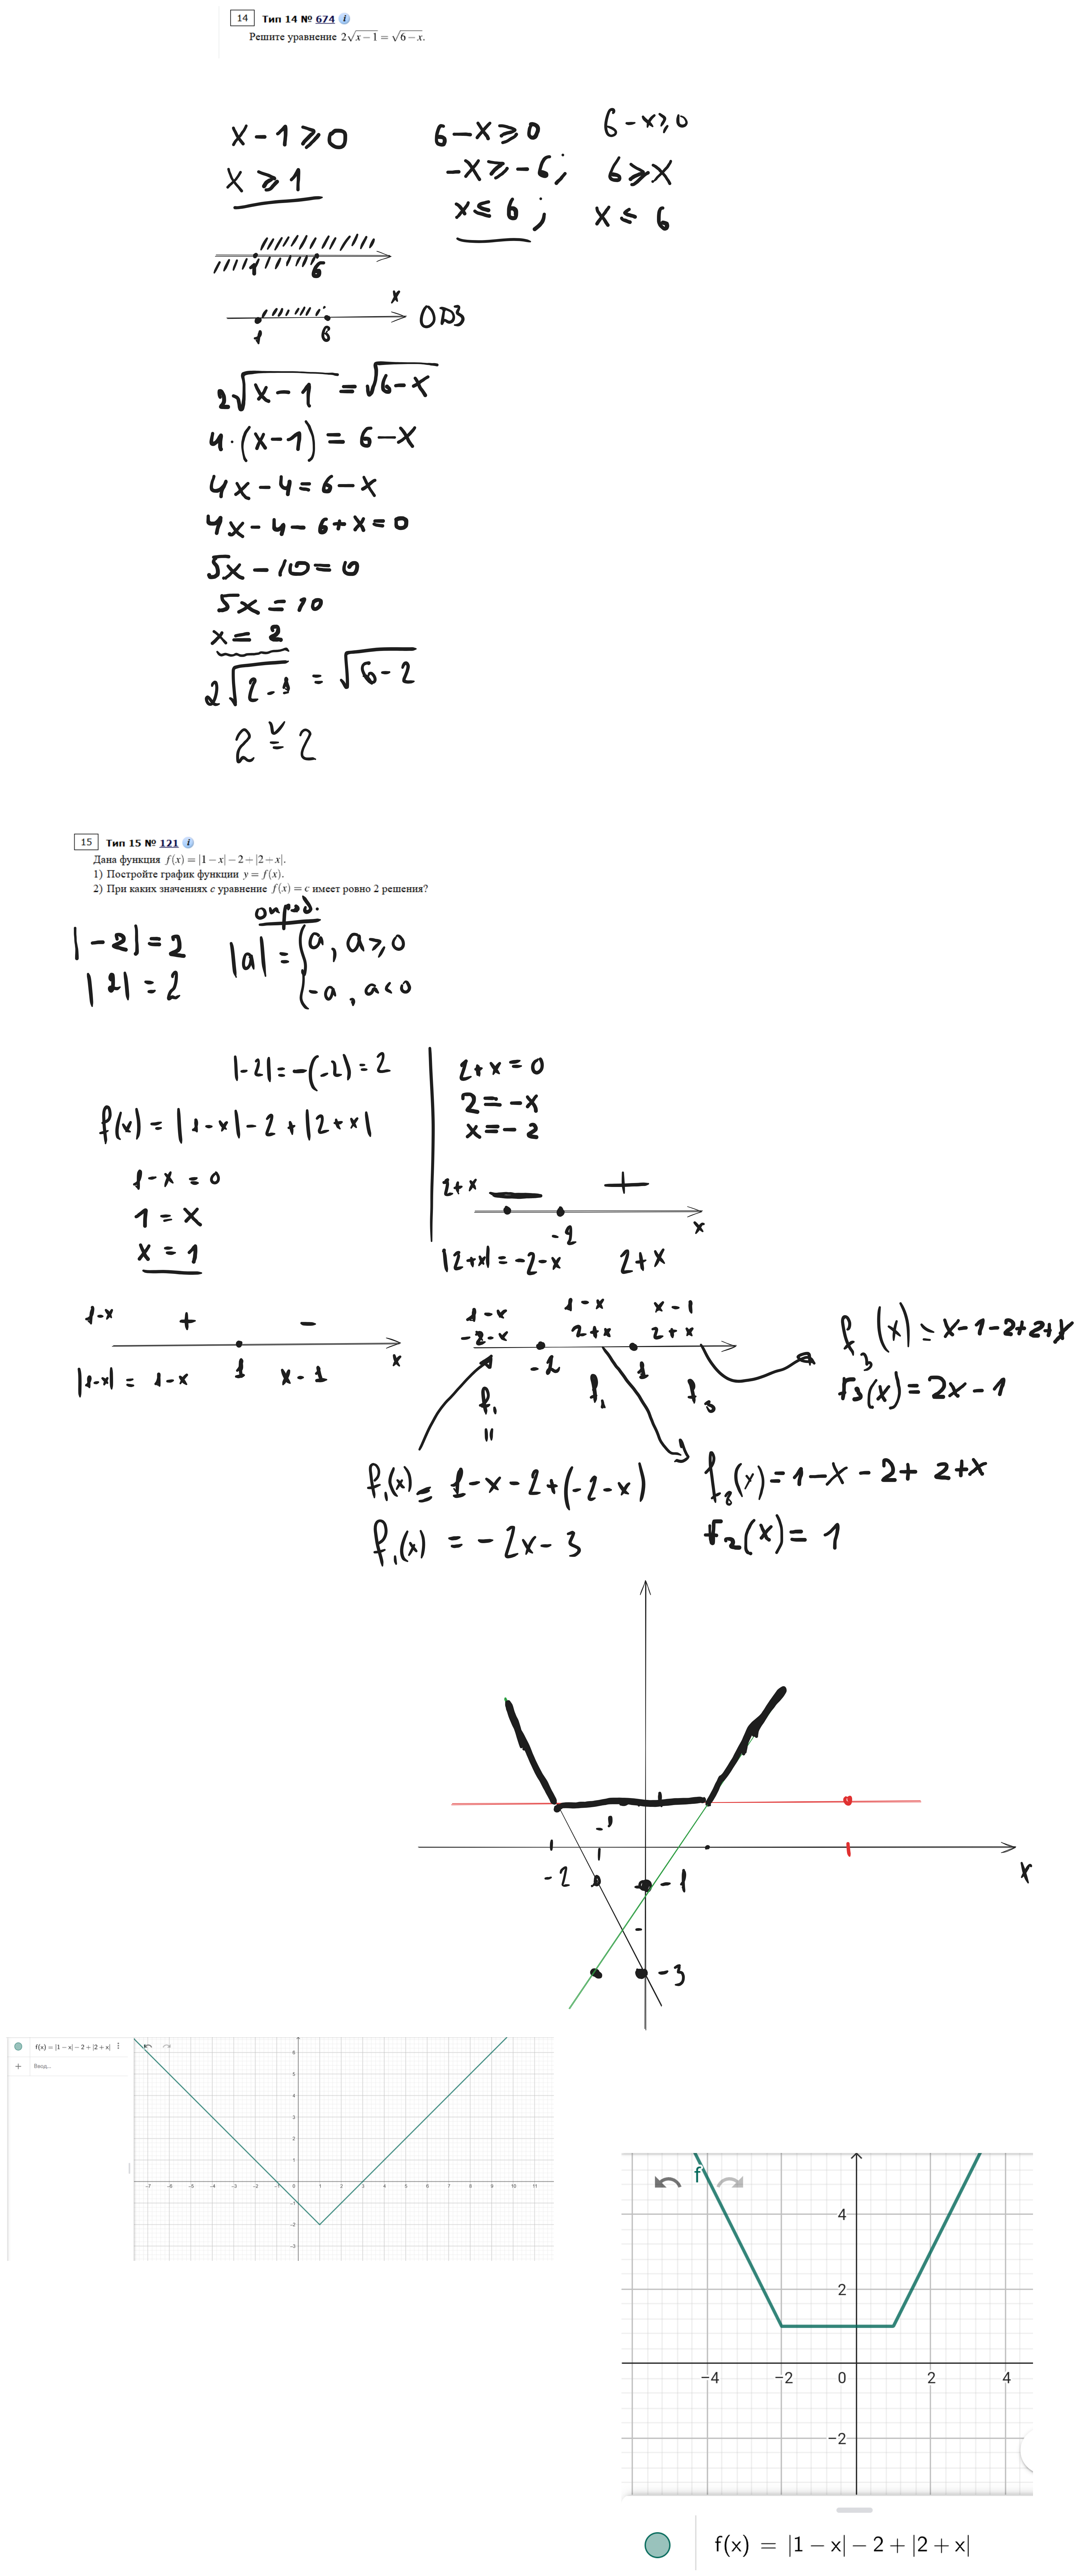 14 Тип 14 № 674 i
Решите уравнение 2√x−1 = √6−x.
x − 1 ⩾ 0
x ⩾ 1
6 − x ⩾ 0
−x ⩾ −6;
x ⩽ 6;
6 − x ⩾ 0
6 ⩾ x
x ⩽ 6
1 6
x
1 6 ОДЗ
2√x−1 = √6−x
4·(x−1) = 6−x
4x − 4 = 6 − x
4x − 4 − 6 + x = 0
5x − 10 = 0
5x = 10
x = 2
2√2−1 = √6−2
2 = 2
15 Тип 15 № 121 i
Дана функция f(x) = |1−x|−2+|2+x|.
1) Постройте график функции y = f(x).
2) При каких значениях c уравнение f(x) = c имеет ровно 2 решения?
опред.
|−2| = 2
|2| = 2
|a| = { a, a ⩾ 0
−a, a < 0
|−2| = −(−2) = 2
f(x) = |1−x| − 2 + |2+x|
1 − x = 0
1 = x
x = 1
2 + x = 0
2 = −x
x = −2
2+x − +
−2 x
|2+x| = −2−x 2+x
1−x + −
1 x
|1−x| = 1−x x−1
1−x 1−x x−1
−2−x 2+x 2+x
−2 1
f₁ f₂ f₃
=
f₃(x) = x−1−2+2+x
f₃(x) = 2x − 1
f₁(x) = 1−x−2+(−2−x)
f₁(x) = −2x − 3
f₂(x) = 1−x−2+2+x
f₂(x) = 1
−1
−2
−1
x
−3
f(x) = |1 − x| − 2 + |2 + x|
+ Ввод...
6
5
4
3
2
1
−7 −6 −5 −4 −3 −2 −1 0 1 2 3 4 5 6 7 8 9 10 11
−1
−2
−3
f
4
2
−4 −2 0 2 4
−2
f(x) = |1 − x| − 2 + |2 + x|